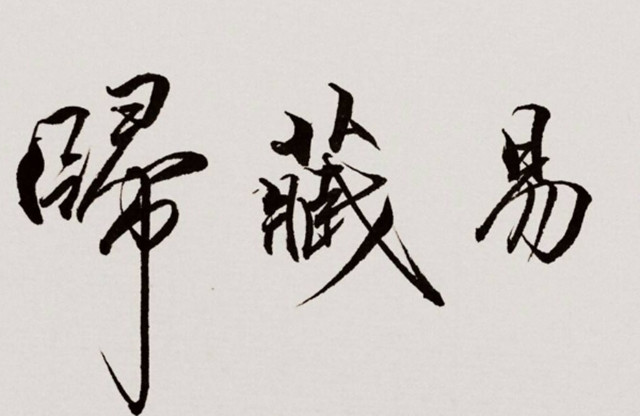 歸藏易